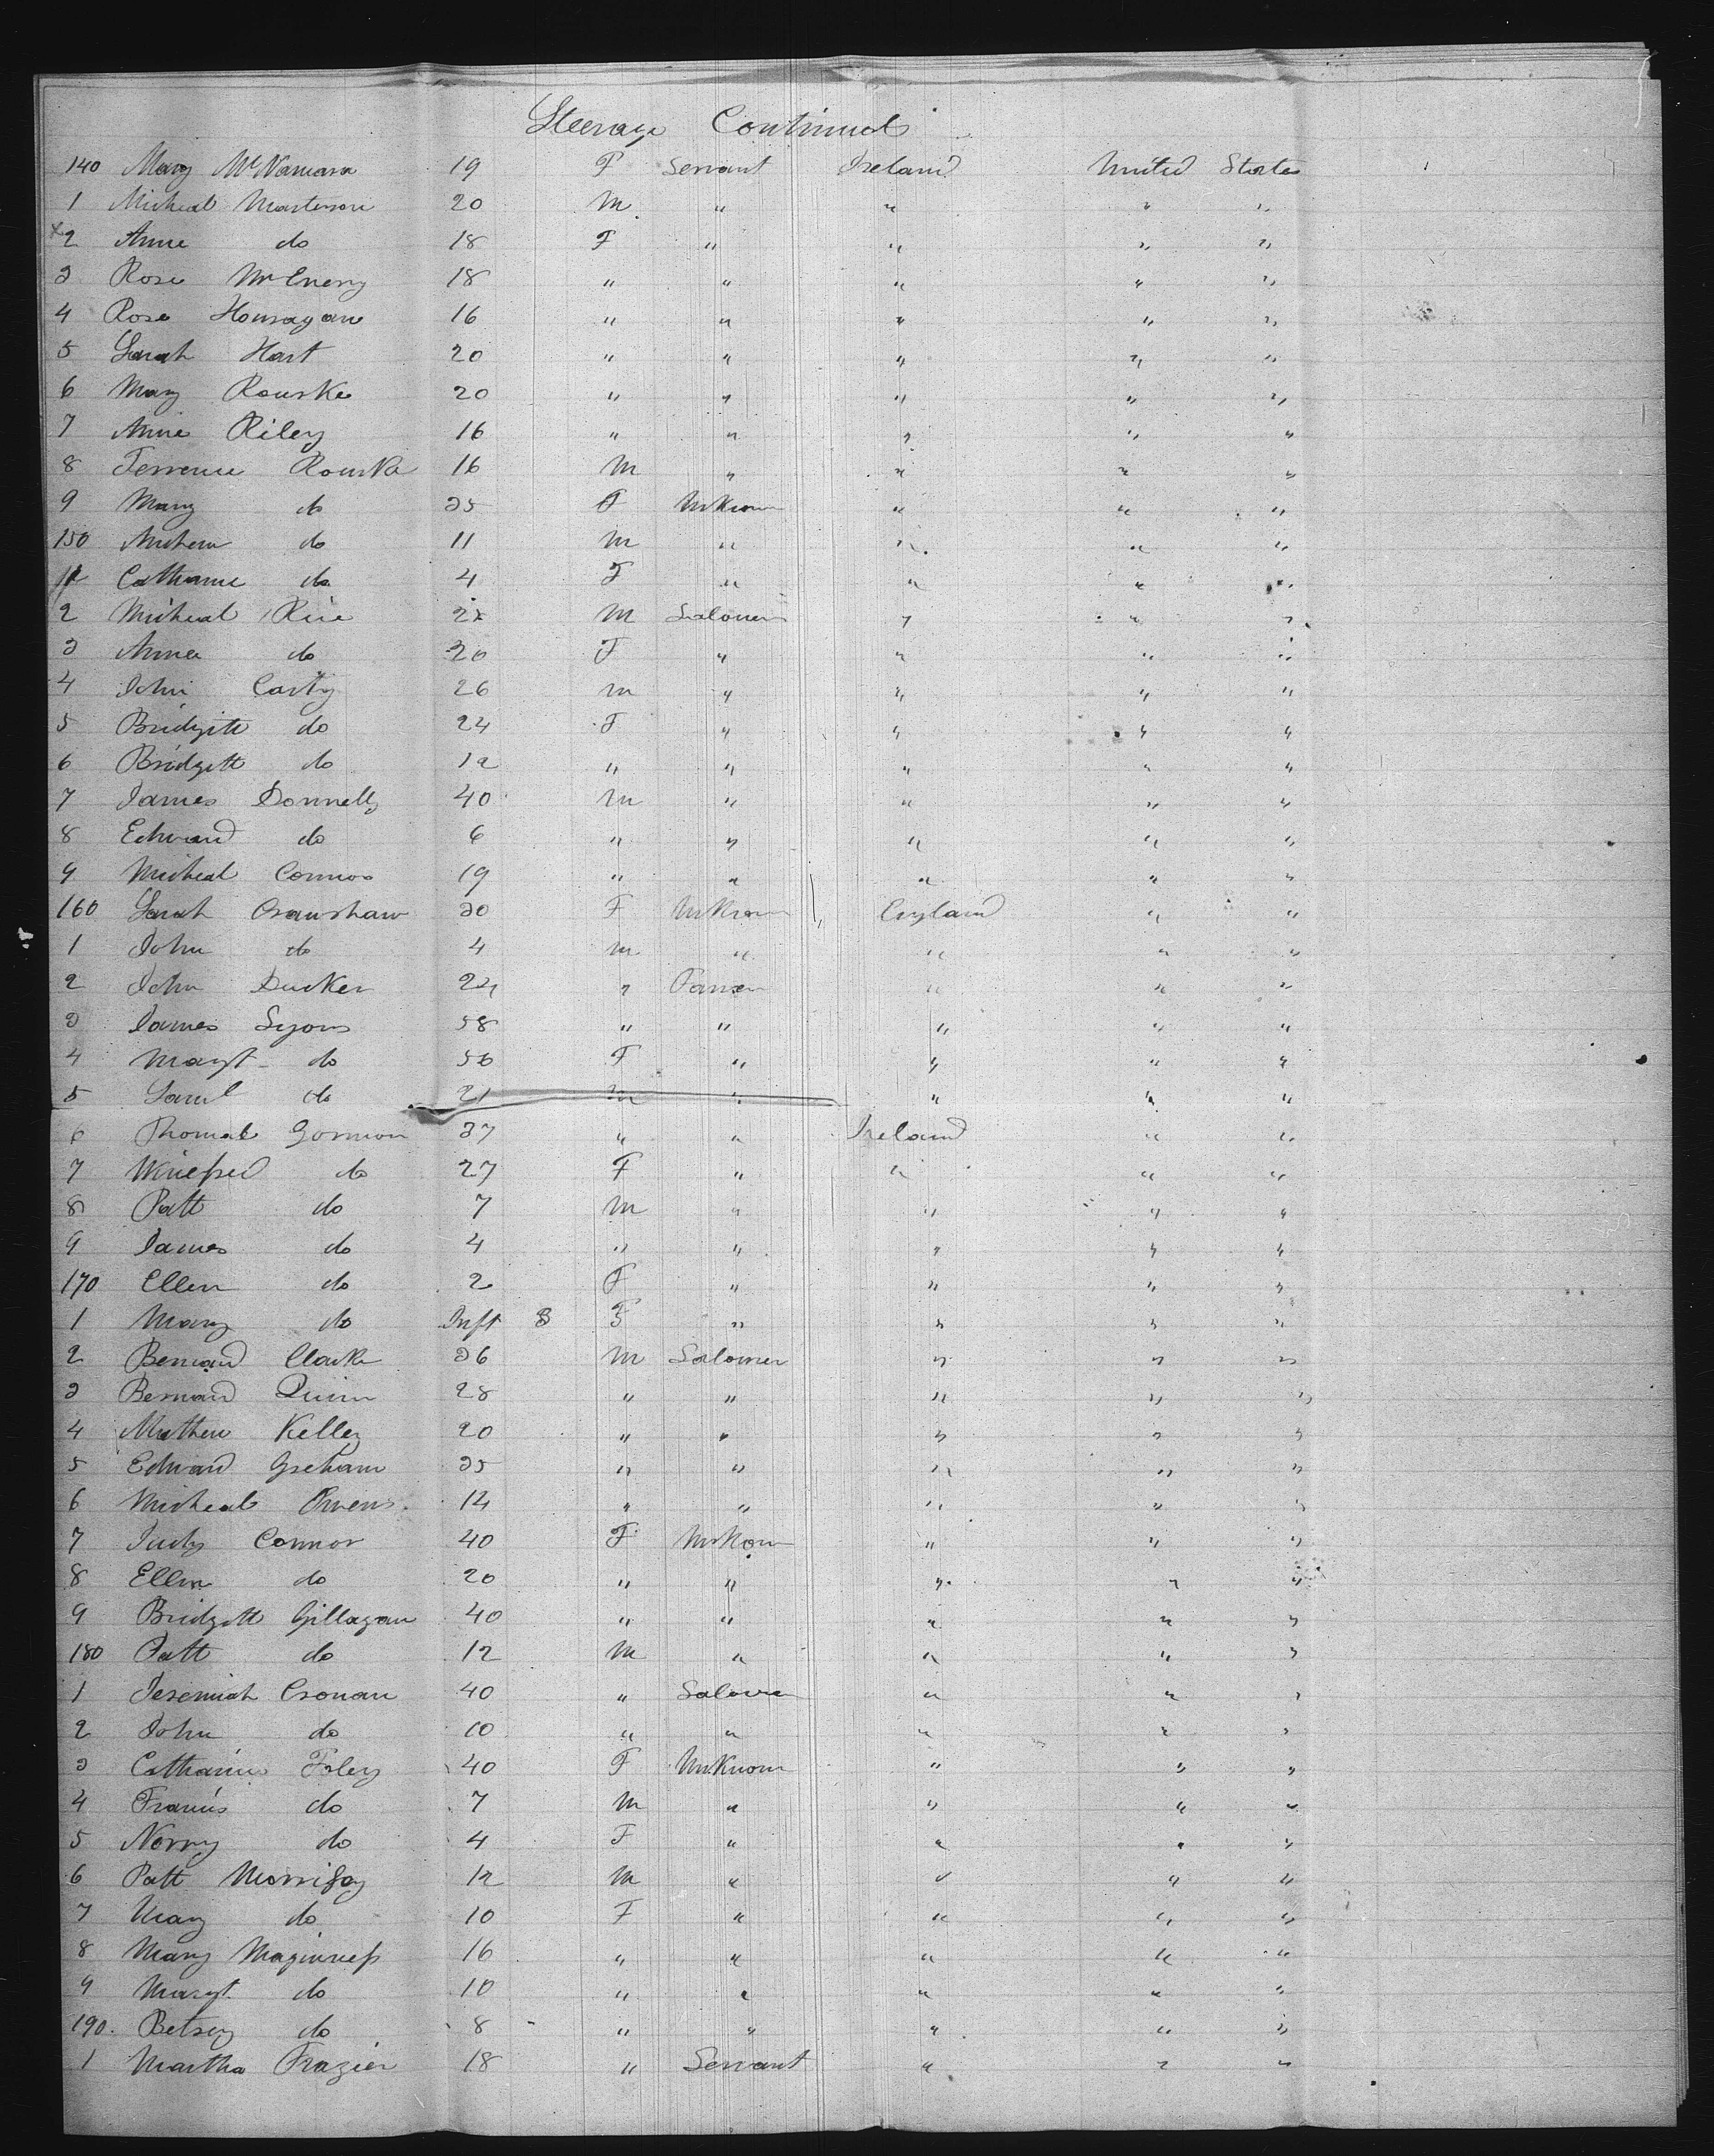 Steerage Continued
140 Mary McNamara 19 F Servant Ireland United States
1 Micheal Masterson 20 M " " " "
x2 Anne do 18 F " " " "
3 Rose McEnery 18 " " " " "
4 Rose Houragan 16 " " " " "
5 Sarah Hart 20 " " " " "
6 Mary Rourke 20 " " " " "
7 Anne Riley 16 " " " " "
8 Terrence Rourke 16 M " " " "
9 Mary do 35 F UnKnown " " "
150 Mathew do 11 M " " " "
1 Catharine do 4 F " " " "
2 Micheal Rice 22 M Labourer " " "
3 Anna do 20 F " " " "
4 John Carty 26 M " " " "
5 Bridgett do 24 F " " " "
6 Bridgett do 12 " " " " "
7 James Donnelly 40 M " " " "
8 Edward do 6 " " " " "
9 Micheal Connor 19 " " " " "
160 Sarah Cranshaw 30 F UnKnown England " "
1 John do 4 M " " " "
2 John Ducker 24 " Farmer " " "
3 James Lyons 58 " " " " "
4 Margt do 56 F " " " "
5 Saml do 21 M " " " "
6 Thomas Gormon 37 " " Ireland " "
7 Winefred do 27 F " " " "
8 Patt do 7 M " " " "
9 James do 4 " " " " "
170 Ellen do 2 F " " " "
1 Mary do Inft 8 F " " " "
2 Bernard Clarke 36 M Labourer " " "
3 Bernard Quinn 28 " " " " "
4 Mathew Kelley 20 " " " " "
5 Edward Greham 35 " " " " "
6 Micheal Owens 14 " " " " "
7 Judy Connor 40 F UnKown " " "
8 Ellen do 20 " " " " "
9 Bridgett Gillagan 40 " " " " "
180 Patt do 12 M " " " "
1 Jeremiah Cronan 40 " Labourer " " "
2 John do 10 " " " " "
3 Catharine Foley 40 F UnKnown " " "
4 Francis do 7 M " " " "
5 Norry do 4 F " " " "
6 Patt Morrisay 12 M " " " "
7 Mary do 10 F " " " "
8 Mary Maginness 16 " " " " "
9 Margt do 10 " " " " "
190. Betsey do 8 " " " " "
1 Martha Frazier 18 " Servant " " "